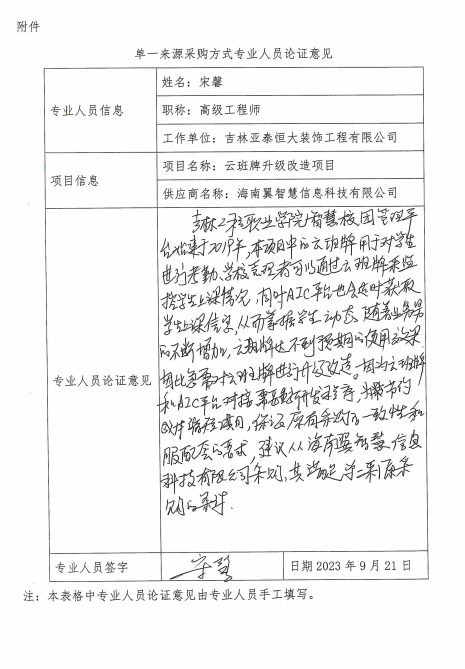 附件
单一来源采购方式专业人员论证意见
专业人员信息
姓名：宋馨
职称：高级工程师
工作单位：吉林亚泰恒大装饰工程有限公司
项目信息
项目名称：云班牌升级改造项目
供应商名称：海南翼智慧信息科技有限公司
专业人员论证意见
吉林工程职业学院智慧校园管理平
台始建于2019年，本项目中的云班牌用于对学生
进行考勤，学校管理者可以通过云班牌来监
控学生上课情况，同时AIC平台也会定时获取
学生上课信息，从而掌握学生动态。随着业务量
的不断增加，云班牌达不到预期的使用效果
因此需要对云班牌进行升级改造。因为云班牌
和AIC平台对接需要重新开发程序，
项目，保证原有采购的一致性和
服配套的要求，建议从海南翼智慧信息
科技有限公司采购，其满足单一来源采
购的条件.
专业人员签字
宋馨
日期 2023 年 9 月 21 日
注：本表格中专业人员论证意见由专业人员手工填写。